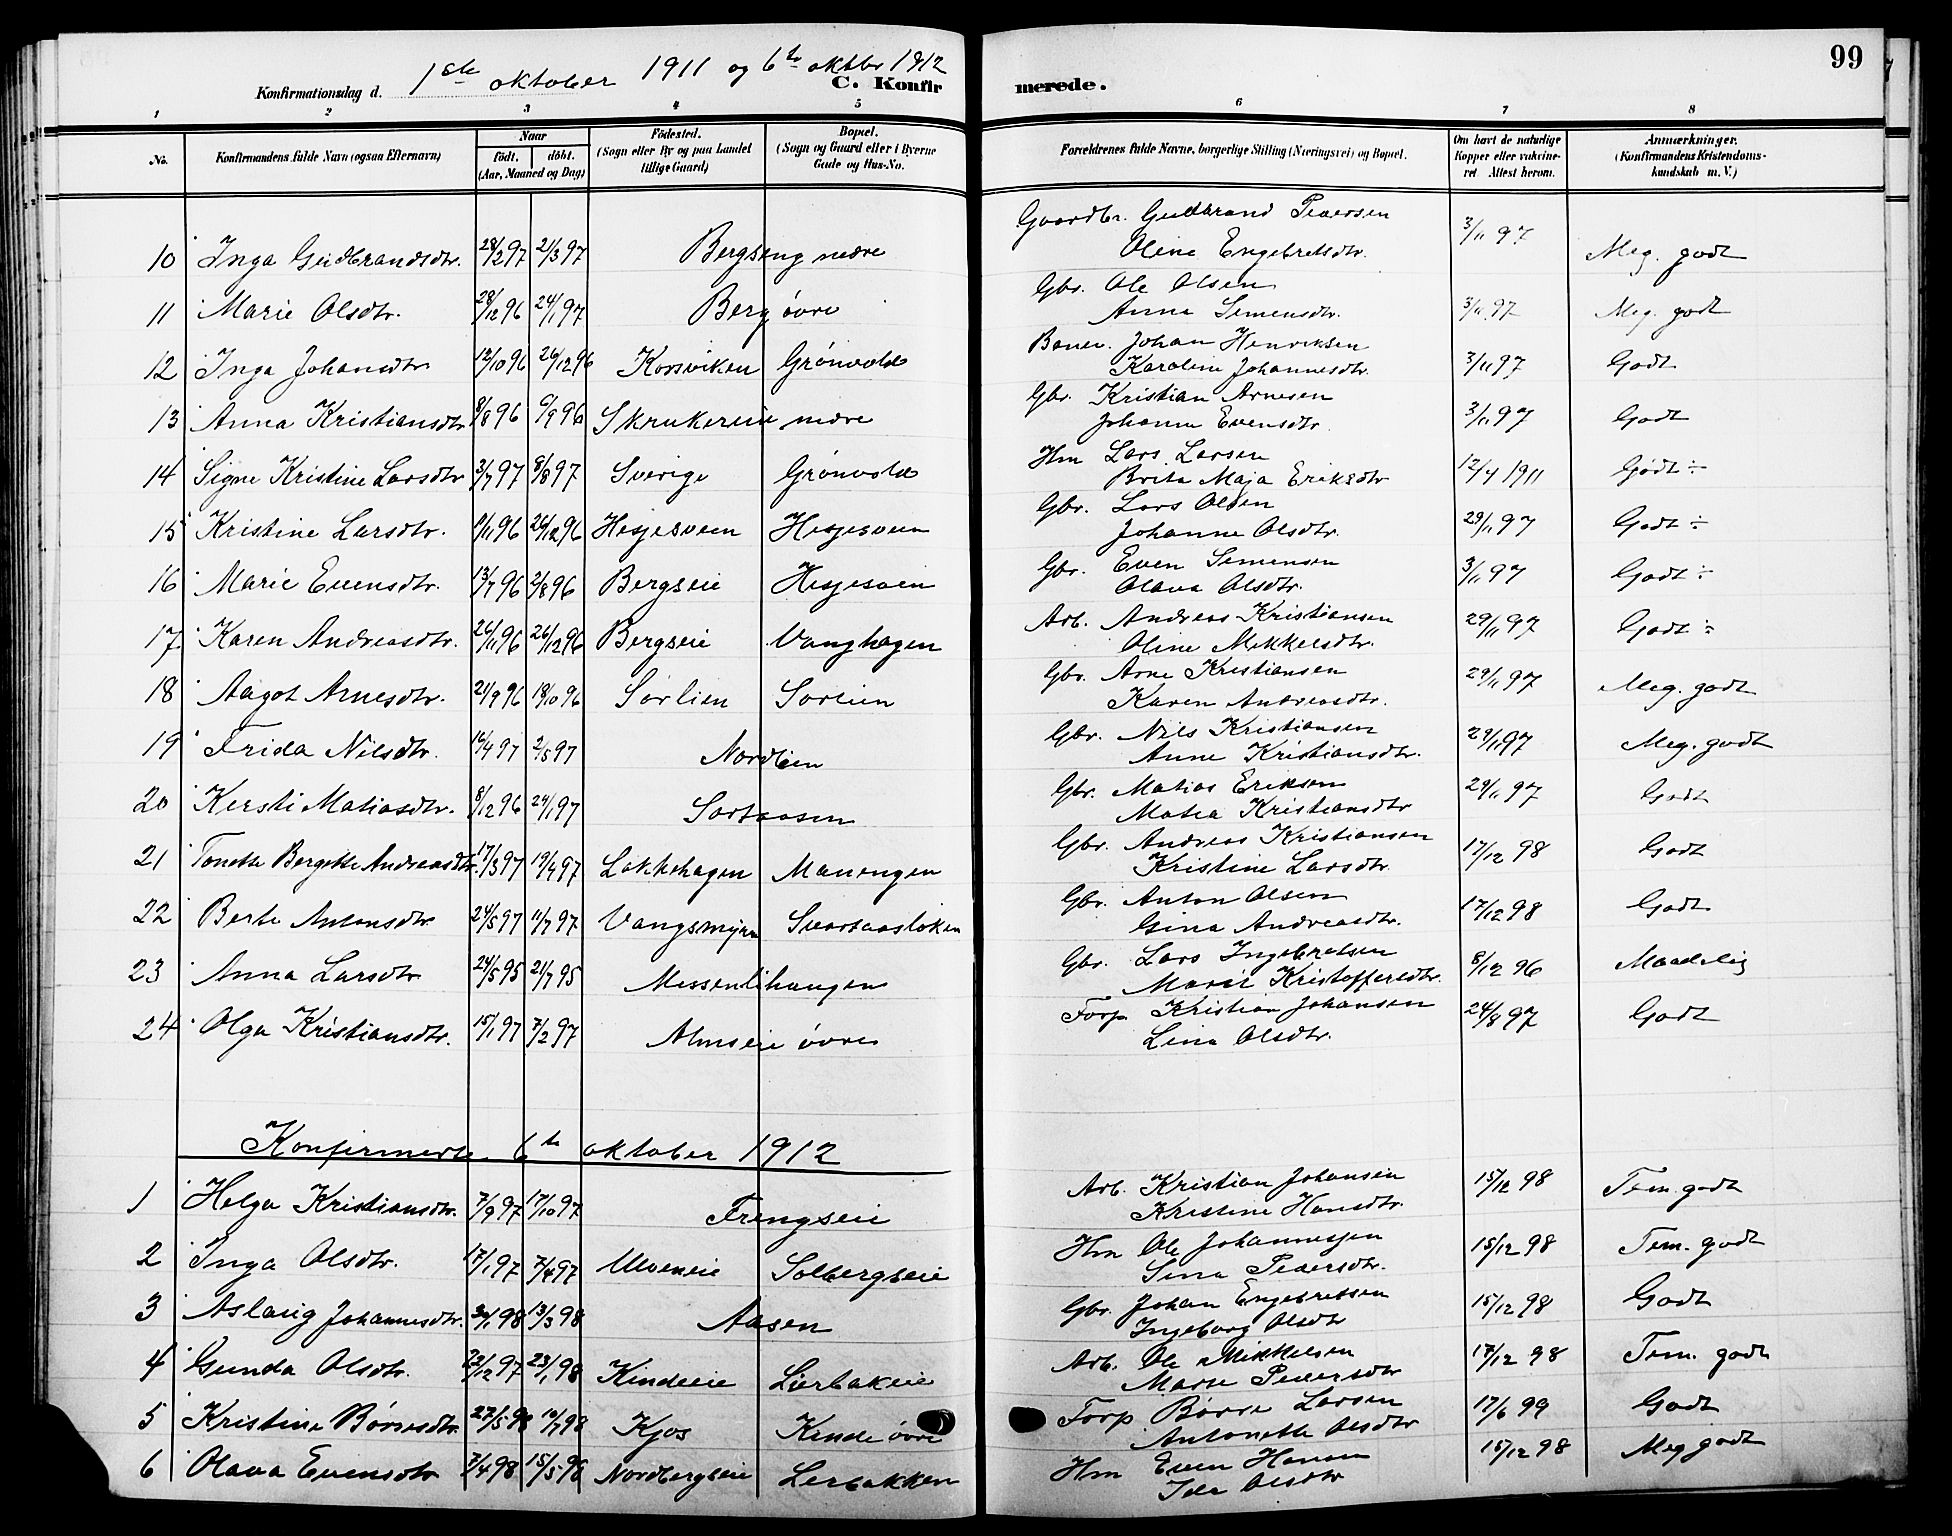 99
Konfirmationsdag d. 1ste oktober 1911 og 6te oktbr 1912
C. Konfirmerede.
1 2 3 4 5 6 7 8
No.
Konfirmandens fulde Navn (ogsaa Efternavn)
Naar
født. døbt.
(Aar, Maaned og Dag)
Fødested.
(Sogn eller By og paa Landet tillige Gaard)
Bopæl.
(Sogn og Gaard eller i Byerne Gade og Hus-No.
Forældrenes fulde Navne, borgerlige Stilling (Næringsvei) og Bopæl.
Om havt de naturlige Kopper eller vakcineret Attest herom.
Anmærkninger.
(Konfirmandens Kristendomskundskab m. V.)
10 Inga Gudbrandsdtr. 28/2 97 21/3 97 Bergseng nedre Gaardbr. Gudbrand Pedersen 3/11 97 Meg. godt
Oline Engebretsdtr.
11 Marie Olsdtr. 28/12 96 24/1 97 Berg övre Gbr. Ole Olsen 3/11 97 Meg. godt
Anna Simensdtr.
12 Inga Johansdtr 12/10 96 26/12 96 Korsviken Grönvold Johan Henriksen 3/11 97 Godt
Karoline Johannesdtr.
13 Anna Kristiansdtr 8/8 96 6/9 96 Skrukereie nedre Gbr. Kristian Arnesen 3/11 97 Godt
Johanne Evensdtr.
14 Signe Kristine Larsdtr 3/7 97 8/8 97 Sverige Grönvold Hm Lars Larsen 12/4 1911 Godt ÷
Brita Maja Eriksdtr
15 Kristine Larsdtr. 9/11 96 26/12 96 Hesjesveen Hesjesveen Gbr. Lars Olsen 29/11 97 Godt ÷
Johanne Olsdtr.
16 Marie Evensdtr. 13/7 96 2/8 96 Bergseie Hesjesveen Gbr. Even Simensen 3/11 97 Godt ÷
Olava Olsdtr.
17 Karen Andreasdtr. 26/11 96 26/12 96 Bergseie Vanghagen Arb. Andreas Kristiansen 29/11 97 Godt ÷
Oline Mikkelsdtr.
18 Aagot Arnesdtr. 21/9 96 18/10 96 Sörlien Sörlien Gbr. Arne Kristiansen 29/11 97 Meg. godt
Karen Andreasdtr.
19 Frida Nilsdtr. 16/4 97 2/5 97 Nordlien Gbr. Nils Kristiansen 29/11 97 Meg. godt
Anne Kristiansdtr.
20 Kersti Matiasdtr. 8/12 96 24/1 97 Sortaasen Gbr. Matias Eriksen 29/11 97 Godt
Matea Kristiansdtr
21 Tonette Bergitte Andreasdtr. 17/3 97 19/4 97 Lökkehagen Manengen Gbr. Andreas Kristiansen 17/12 98 Godt
Kristine Larsdtr.
22 Berte Antonsdtr. 24/5 97 11/7 97 Vangsmyren Svartaaslöken Gbr. Anton Olsen 17/12 98 Godt
Gina Andreasdtr.
23 Anna Larsdtr 24/5 95 21/7 95 Messenlihaugen Gbr. Lars Ingebretsen 8/12 96 Maadelig
Marit Kristoffersdtr.
24 Olga Kristiansdtr. 15/1 97 7/2 97 Almseie övre Torp Kristian Johansen 24/8 97 Godt
Lina Olsdtr.
Konfirmerte 6te oktober 1912
1 Helga Kristiansdtr. 7/9 97 17/10 97 Frengseie Arb. Kristian Johansen 15/12 98 Tem. godt
Kristine Hansdtr.
2 Inga Olsdtr. 17/1 97 7/4 97 Ulveneie Solbergseie Hm Ole Johannesen 15/12 98 Tem. godt
Sina Pedersdtr.
3 Aslaug Johannesdtr. 13/3 98 Aasen Gbr. Johan Engebretsen 15/12 98 Godt
Ingeborg Olsdtr
4 Gunda Olsdtr. 22/12 97 23/1 98 Kindeie Lierbakeie Arb. Ole Mikkelsen 17/12 98 Tem. godt
Marte Pedersdtr
5 Kristine Börresdtr. 27/5 98 10/7 98 Kjos Kinde övre Torp Börre Larsen 17/6 99 Godt
Antonette Olsdtr
6 Olava Evensdtr 7/4 98 15/5 98 Nordbergseie Lerbakken Hm Even Hansen 15/12 98 Meg godt
Ida Olsdtr